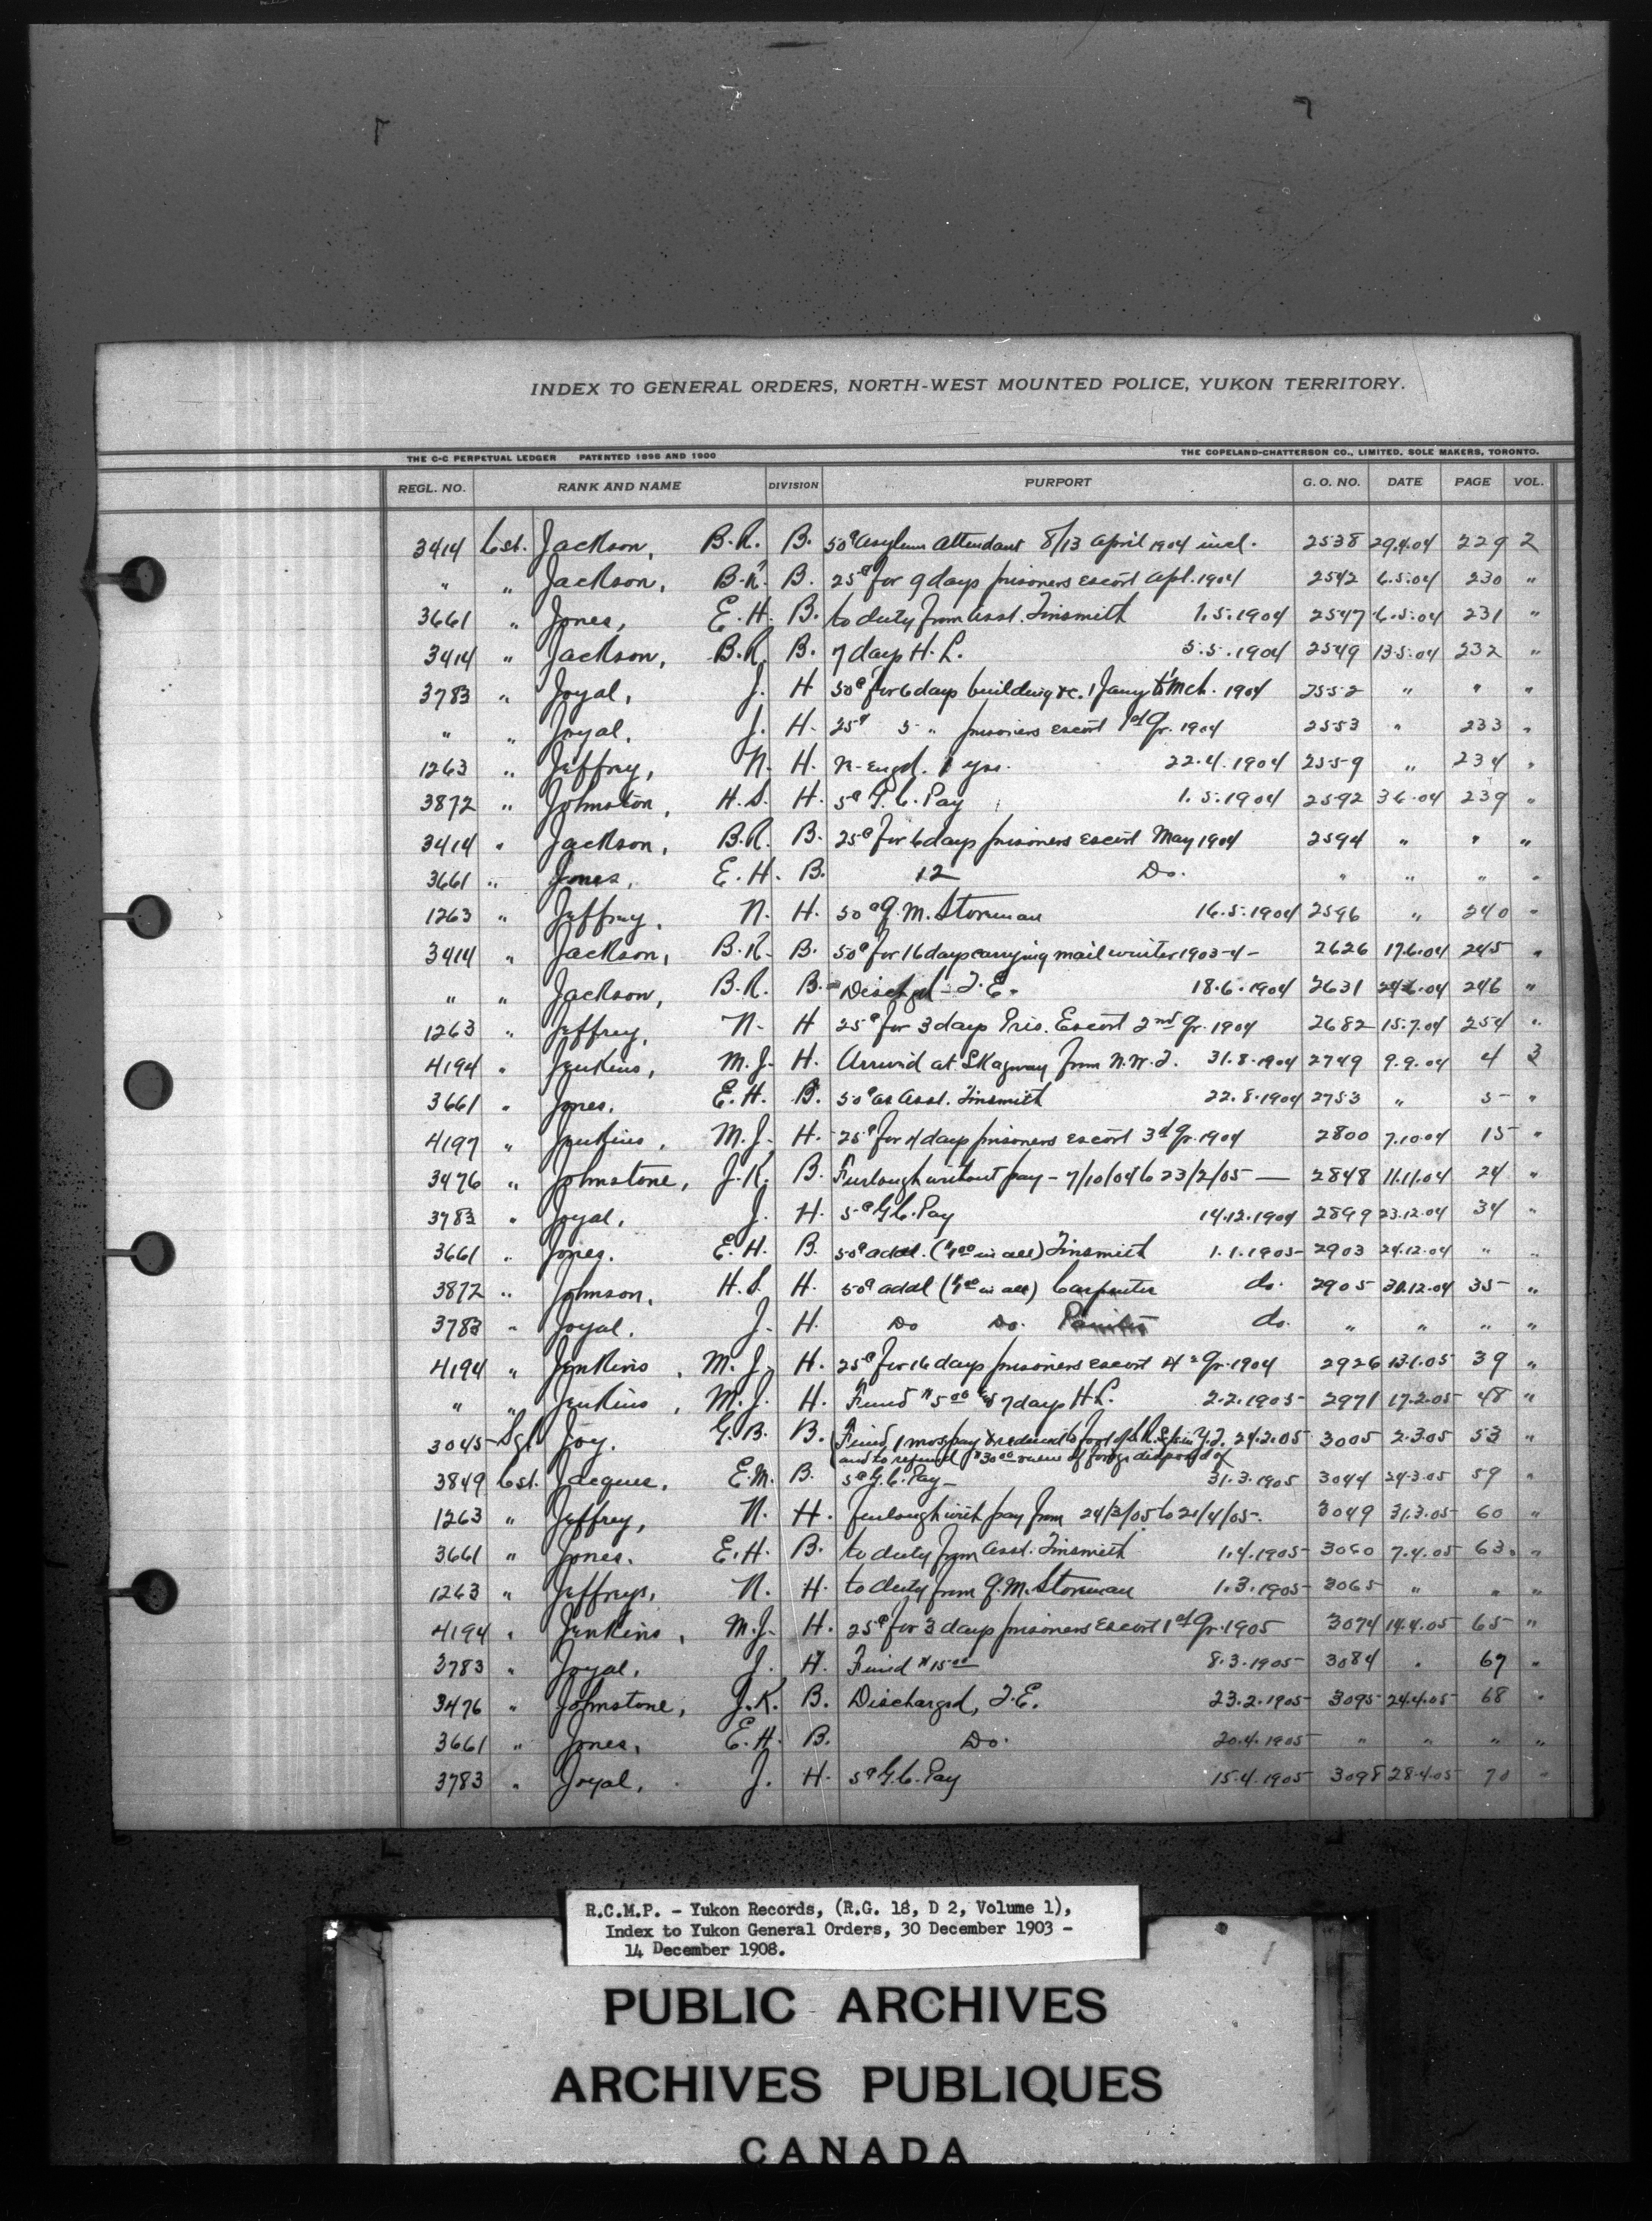 INDEX TO GENERAL ORDERS, NORTH-WEST MOUNTED POLICE, YUKON TERRITORY.
THE C-C PERPETUAL LEDGER PATENTED 1898 AND 1900 THE COPELAND-CHATTERSON CO., LIMITED. SOLE MAKERS, TORONTO.
REGL. NO. RANK AND NAME DIVISION PURPORT G. O. NO. DATE PAGE VOL.
3414 Cst. Jackson, B.R. B. 50¢ Asylum Attendant 8/13 April 1904 incl. 2538 29.4.04 229 2
" " Jackson, B.R. B. 25¢ for 9 days prisoners escort Apl. 1904 2542 6.5.04 230 "
3661 " Jones, E.H. B. to duty from Asst. Tinsmith 1.5.1904 2547 6.5.04 231 "
3414 " Jackson, B.R. B. 7 days H.L. 5.5.1904 2549 13.5.04 232 "
3783 " Joyal, J. H 50¢ for 6 days building &c. 1 Jany to Mch. 1904 2552 " " "
" " Joyal, J. H. 25¢ 5 " prisoners escort 1st Qr. 1904 2553 " 233 "
1263 " Jeffrey, N. H. Re-engd. 1 yrs. 22.4.1904 2559 " 234 "
3872 " Johnston, H.S. H. 5¢ G.C. Pay 1.5.1904 2592 3.6.04 239 "
3414 " Jackson, B.R. B. 25¢ for 6 days prisoners escort May 1904 2594 " " "
3661 " Jones, E.H. B. 12 Do. " " " "
1263 " Jeffrey, N. H. 50¢ Q.M. Storeman 16.5.1904 2596 " 240 "
3414 " Jackson, B.R. B. 50¢ for 16 days carrying mail winter 1903-4- 2626 17.6.04 245 "
" " Jackson, B.R. B. Dischgd - T.E. 18.6.1904 2631 24.6.04 246 "
1263 " Jeffrey, N. H 25¢ for 3 days Pris. Escort 2nd Qr. 1904 2682 15.7.04 254 "
4194 " Jenkins, M.J. H. Arrived at Skagway from N.W.T. 31.8.1904 2749 9.9.04 4 3
3661 " Jones, E.H. B. 50¢ as Asst. Tinsmith 22.8.1904 2753 " 5 "
4197 " Jenkins, M.J. H. 25¢ for 4 days prisoners escort 3d Qr. 1904 2800 7.10.04 15 "
3476 " Johnstone, J.K. B. Furlough without pay - 7/10/04 to 23/2/05 — 2848 11.11.04 24 "
3783 " Joyal, J. H. 5¢ G.C. Pay 14.12.1904 2899 23.12.04 34 "
3661 " Jones. E.H. B. 50¢ addl. ($1.00 in all) Tinsmith 1.1.1905 2903 24.12.04 " "
3872 " Johnson, H.S. H. 50¢ addl ($1.00 in all) Carpenter do. 2905 30.12.04 35 "
3783 " Joyal. J. H. Do Do. Painter do. " " " "
4194 " Jenkins, M.J. H. 25¢ for 16 days prisoners escort 4th Qr. 1904 2926 13.1.05 39 "
" " Jenkins, M.J. H. Fined $5.00 & 7 days H.L. 2.2.1905 2971 17.2.05 48 "
3045 Sgt Joy. G.B. B. Fined 1 mos pay & reduced to foot of R. Sgts in Y.T. 24.2.05 3005 2.3.05 53 "
and to refund $30.00 value of forage disposed of
3849 Cst. Jacques, E.M. B. 5¢ G.C. Pay - 31.3.1905 3044 24.3.05 59 "
1263 " Jeffrey, N. H. furlough with pay from 24/3/05 to 21/4/05. 3049 31.3.05 60 "
3661 " Jones. E.H. B. to duty from Asst. Tinsmith 1.4.1905 3060 7.4.05 63. "
1263 " Jeffreys, N. H. to duty from Q.M. Storeman 1.3.1905 3065 " " "
4194 " Jenkins, M.J. H. 25¢ for 3 days prisoners Escort 1st Qr. 1905 3074 14.4.05 65 "
3783 " Joyal, J. H. Fined $15.00 8.3.1905 3084 " 67 "
3476 " Johnstone, J.K. B. Discharged, T.E. 23.2.1905 3095 24.4.05 68 "
3661 " Jones, E.H. B. Do. 20.4.1905 " " " "
3783 " Joyal, J. H. 5¢ G.C. Pay 15.4.1905 3098 28.4.05 70 "
R.C.M.P. - Yukon Records, (R.G. 18, D 2, Volume 1),
Index to Yukon General Orders, 30 December 1903 -
14 December 1908.
PUBLIC ARCHIVES
ARCHIVES PUBLIQUES
CANADA